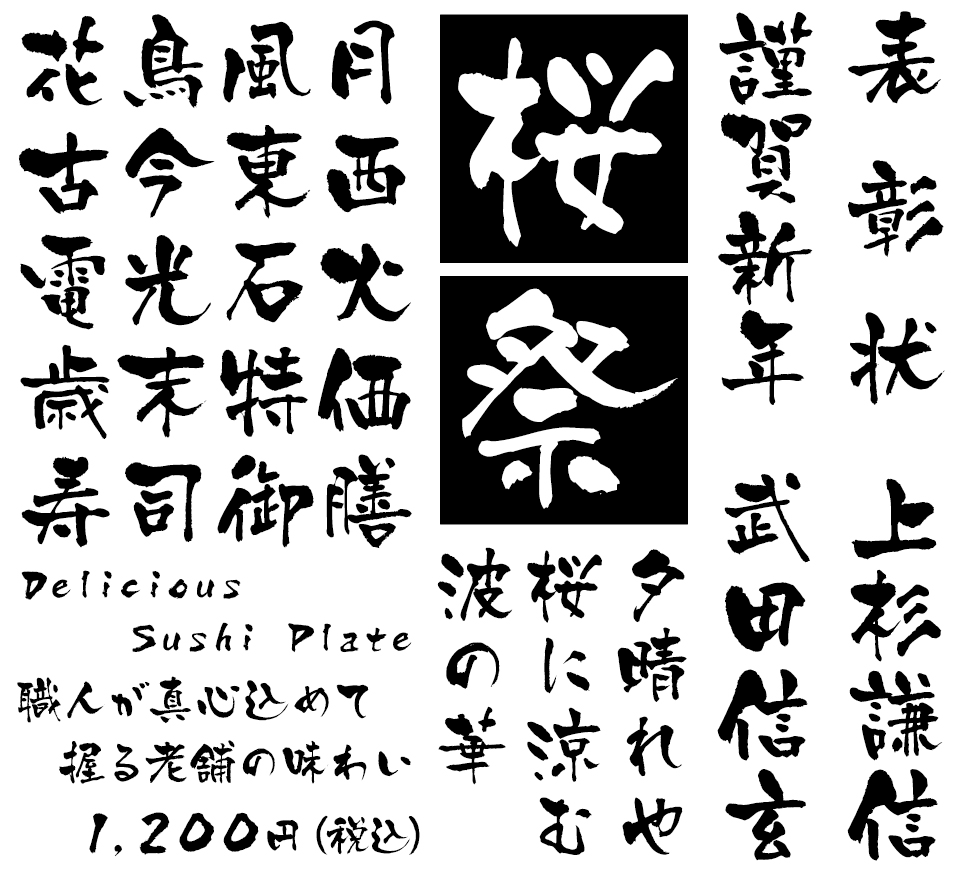 花鳥風月
古今東西
電光石火
歳末特価
寿司御膳
Delicious
Sushi Plate
職人が真心込めて
握る老舗の味わい
1,200円(税込)
桜
祭
夕晴れや
桜に涼む
波の華
表彰状
謹賀新年
上杉謙信
武田信玄